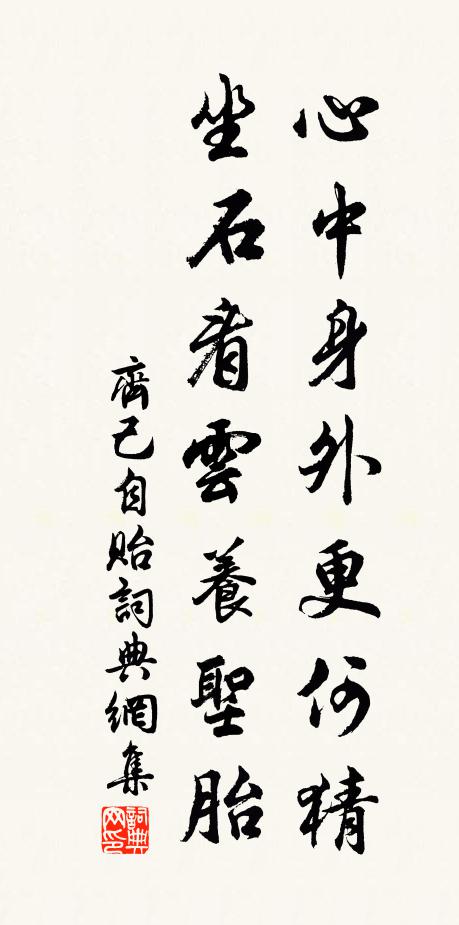 心中身外更何猜
坐石看雲養聖胎
齊己自貽詞典網集
詞典网印